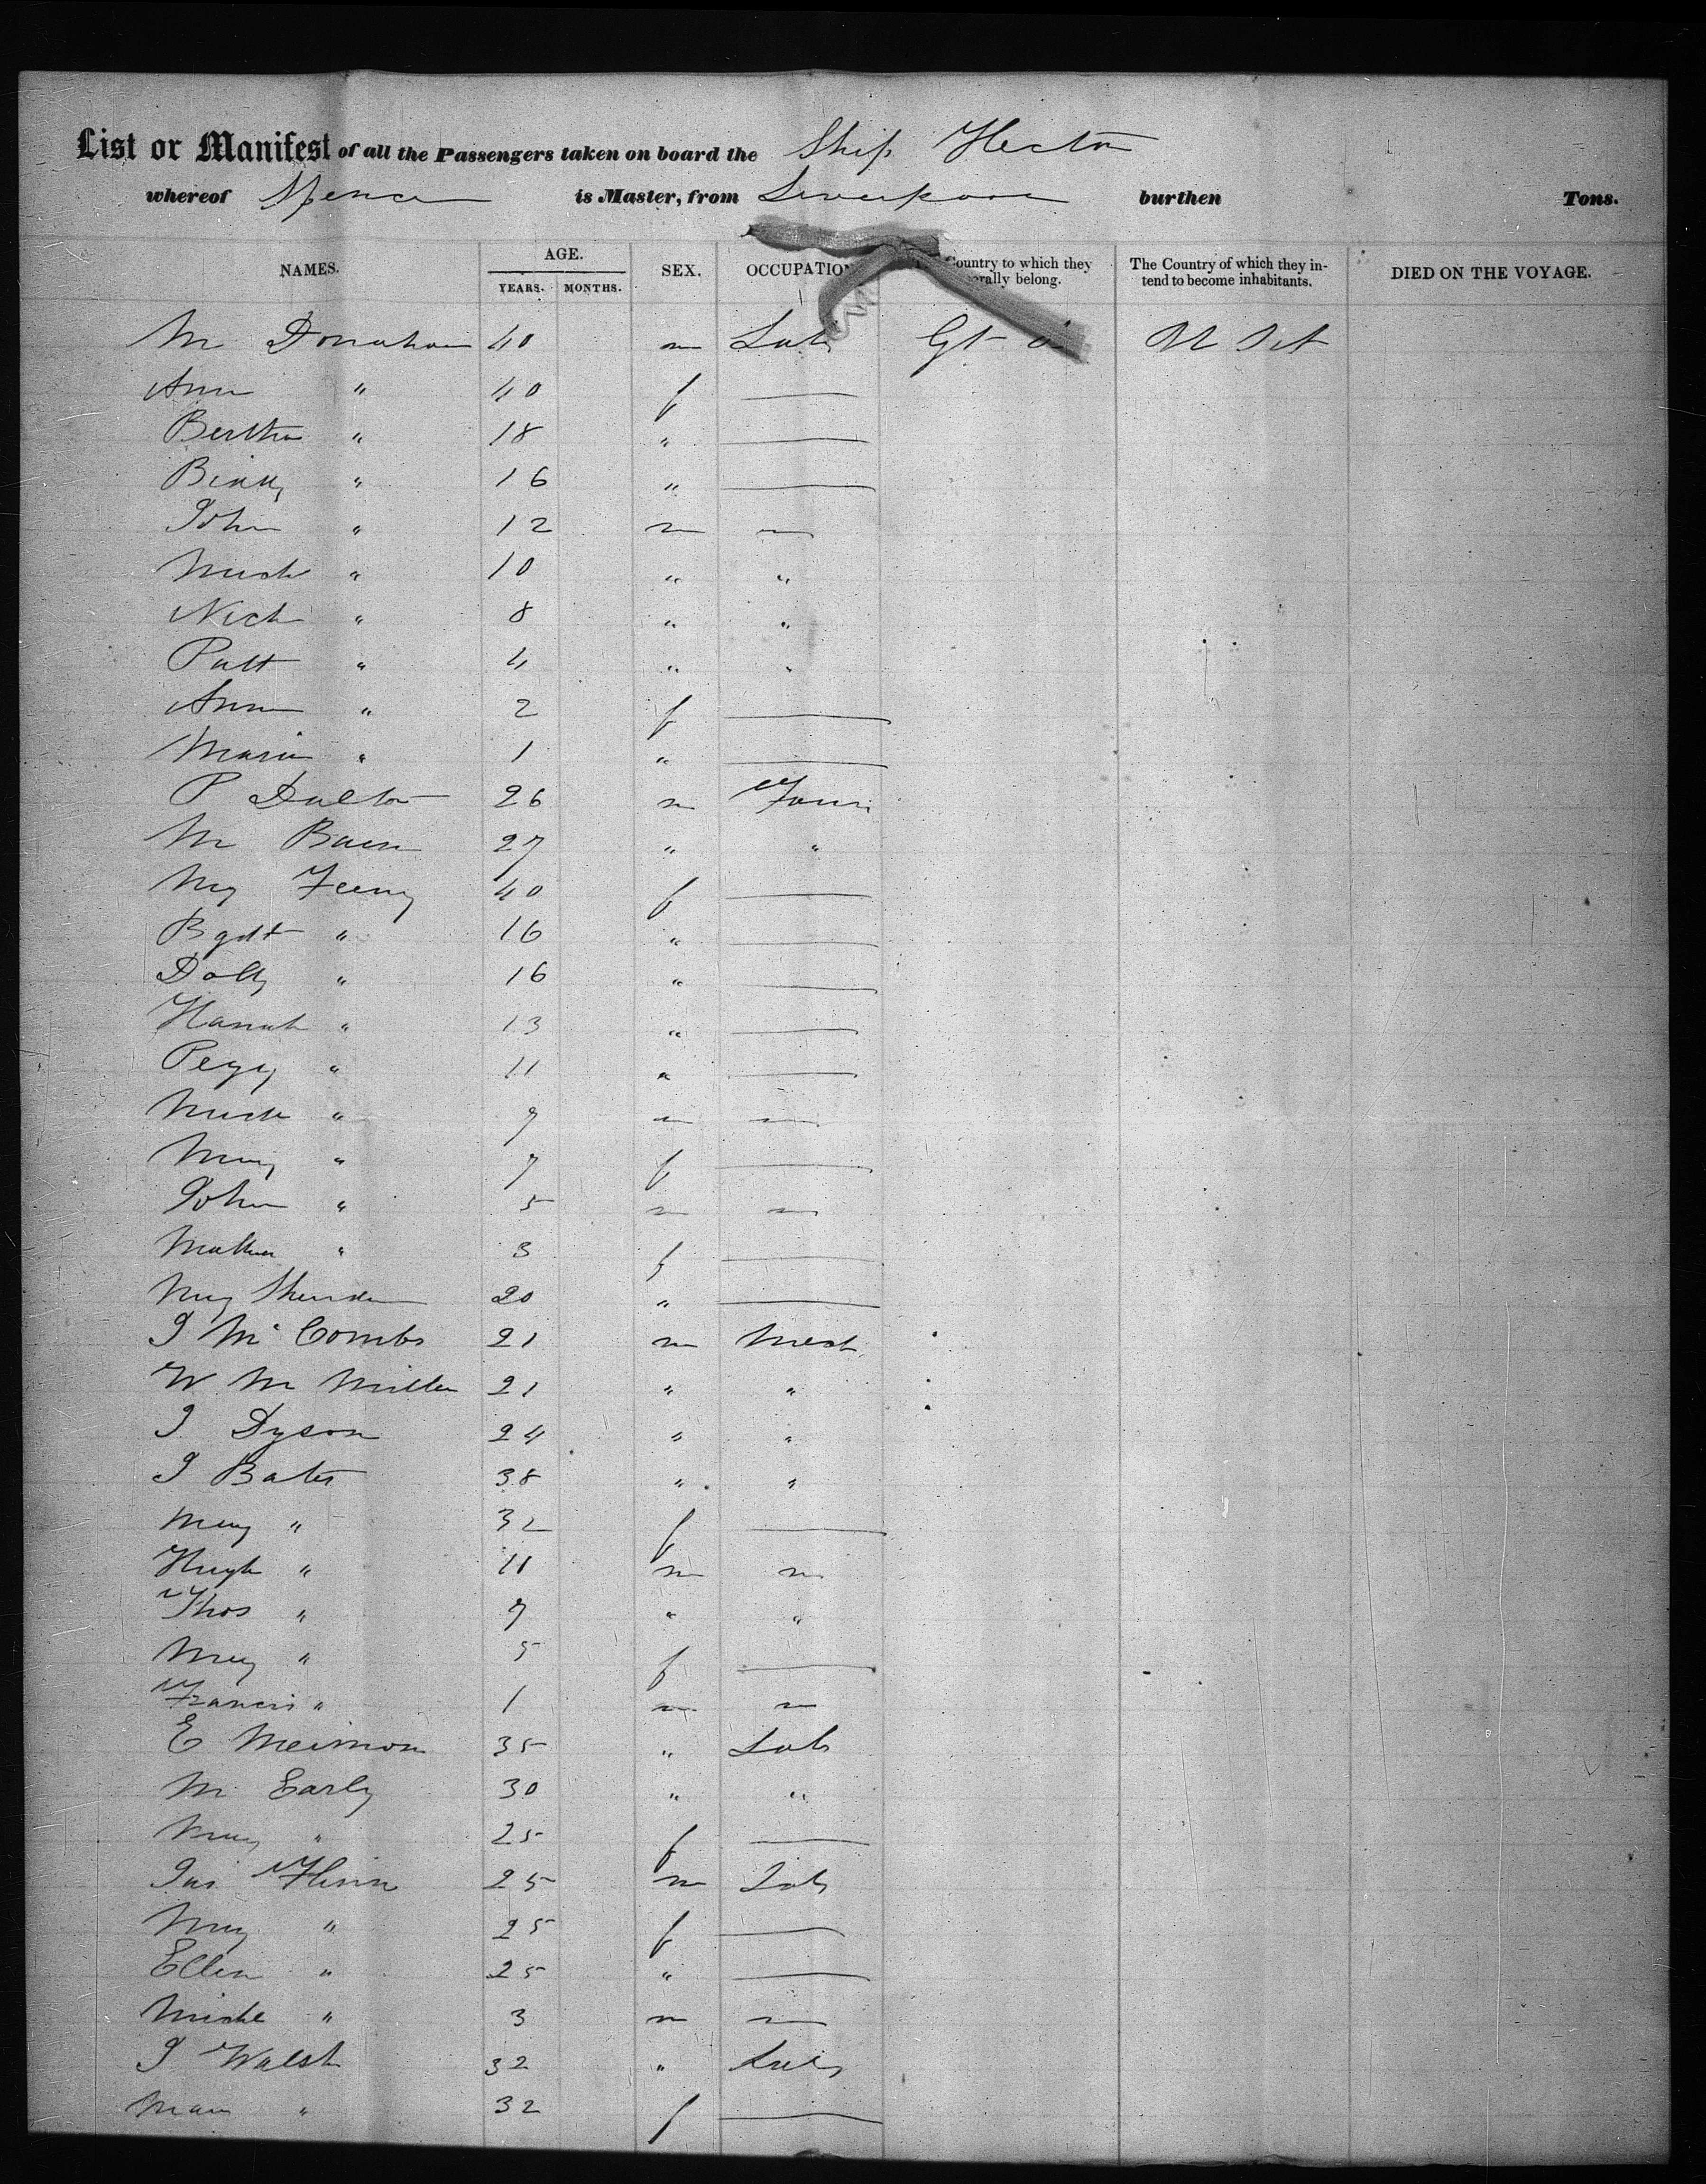 List or Manifest of all the Passengers taken on board the Ship Hector
whereof Spencer is Master, from Liverpool burthen Tons.
NAMES. AGE. YEARS. MONTHS. SEX. OCCUPATION Country to which they belong. The Country of which they intend to become inhabitants. DIED ON THE VOYAGE.
M Donahoe 40 m Lab Gt U St
Ann " 40 f —
Berthia " 18 " —
Biddy " 16 " —
John " 12 m —
Mich " 10 " "
Nich " 8 " "
Patt " 4 " "
Ann " 2 f —
Maria " 1 " —
P Dalton 26 m Farm
M 27 " "
My Feeny 40 f —
Bgdt " 16 " —
Dolly " 16 " —
Hanah " 13 " —
Pegy " 11 " —
Mich " 9 m m
Mary " 7 f —
John " 5 m m
" 3 f —
My Sheridan 20 " —
J McCombs 21 m Mech
W M Miller 21 " "
J Dyson 24 " "
J Bates 38 " "
Mary " 32 f —
Hugh " 11 m m
Thos " 9 " "
Mary " 5 f —
Francis " 1 m m
E 35 " Lab
M Early 30 " "
Mary " 25 f —
Jas Flinn 25 m Lab
Mry " 25 f —
Ellen " 25 " —
Miche " 3 m m
J Walsh 32 " Lab
" 32 f —